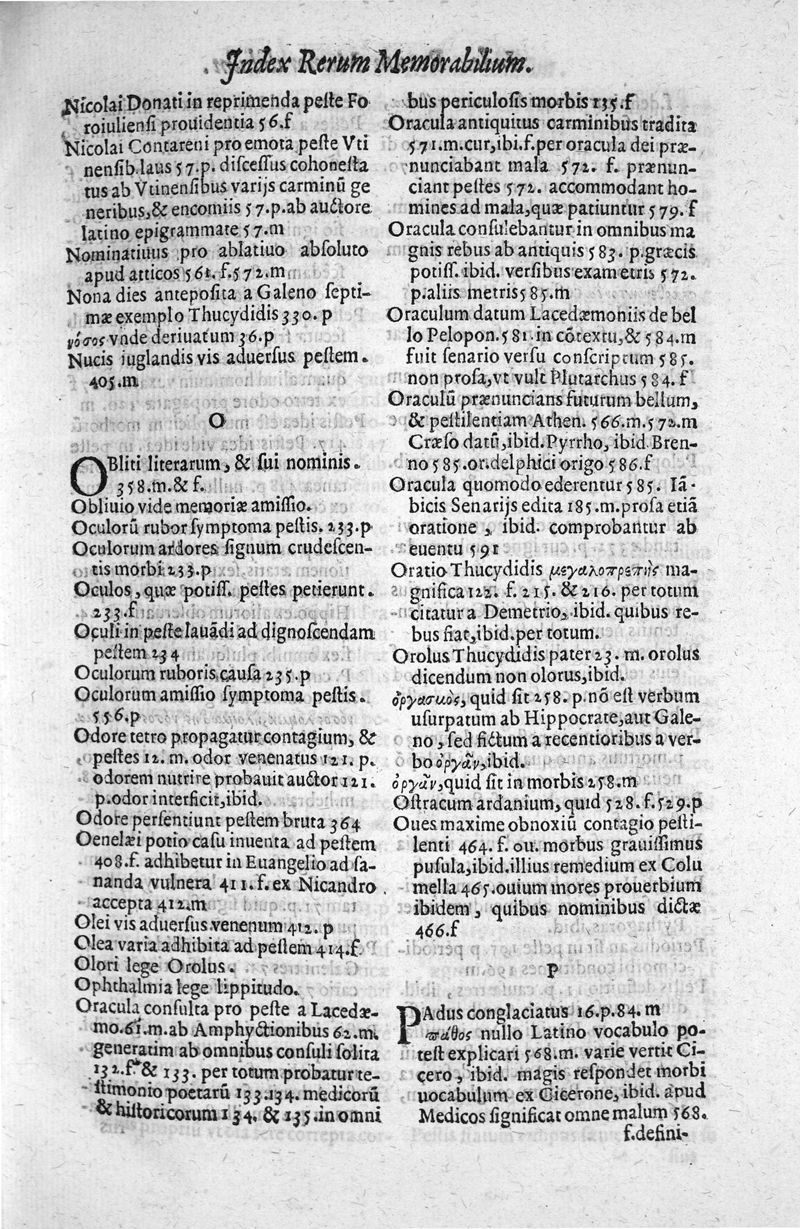 Index Rerum Memorabilium.
Nicolai Donati in reprimenda peſte Fo
roiulienſi prouidentia 56.f
Nicolai Contareni pro emota peſte Vti
nenſib. laus 57.p. diſceſſus cohoneſta
tus ab Vtinenſibus varijs carminũ ge
neribus, & encomiis 57.p.ab auctore
latino epigrammate 57.m
Nominatiuus pro ablatiuo abſoluto
apud atticos 561. f.572.m
Nona dies antepoſita a Galeno ſepti-
mæ exemplo Thucydidis 330. p
νόσος vnde deriuatum 36.p
Nucis iuglandis vis aduerſus peſtem.
405.m
O
OBliti literarum, & ſui nominis.
358.m.& f.
Obliuio vide memoriæ amiſſio.
Oculorũ rubor ſymptoma peſtis. 233.p
Oculorum ardores ſignum crudeſcen-
tis morbi 233.p
Oculos, quæ potiſſ. peſtes petierunt.
233.f
Oculi in peſte lauãdi ad dignoſcendam
peſtem 234
Oculorum ruboris cauſa 235.p
Oculorum amiſſio ſymptoma peſtis.
556.p
Odore tetro propagatur contagium, &
peſtes 12. m. odor venenatus 121. p.
odorem nutrire probauit auctor 121.
p.odor interficit, ibid.
Odore perſentiunt peſtem bruta 364
Oenelæi potio caſu inuenta ad peſtem
408.f. adhibetur in Euangelio ad ſa-
nanda vulnera 411.f. ex Nicandro
accepta 412.m
Olei vis aduerſus venenum 412. p
Olea varia adhibita ad peſtem 414.f.
Olori lege Orolus.
Ophthalmia lege lippitudo.
Oracula conſulta pro peſte a Lacedæ-
mo.61.m.ab Amphyctionibus 62.m.
generatim ab omnibus conſuli ſolita
132.f. & 133. per totum probatur te-
ſtimonio poetarũ 133.134. medicorũ
& hiſtoricorum 134. & 135.in omni
bus periculoſis morbis 135.f
Oracula antiquitus carminibus tradita
571.m.cur, ibi.f.per oracula dei præ-
nunciabant mala 572. f. prænun-
ciant peſtes 572. accommodant ho-
mines ad mala, quæ patiuntur 579. f
Oracula conſulebantur in omnibus ma
gnis rebus ab antiquis 583. p.græcis
potiſſ. ibid. verſibus exametris 572.
p.aliis metris 585.m
Oraculum datum Lacedæmoniis de bel
lo Pelopon.581.in cõtextu, & 584.m
fuit ſenario verſu conſcriptum 585.
non proſa, vt vult Plutarchus 584. f
Oraculũ prænuncians futurum bellum,
& peſtilentiam Athen. 566.m.572.m
Cræſo datũ, ibid. Pyrrho, ibid. Bren-
no 585.or.delphici origo 586.f
Oracula quomodo ederentur 585. Iã-
bicis Senarijs edita 185.m.proſa etiã
oratione , ibid. comprobantur ab
euentu 591
Oratio Thucydidis μεγαλοπρεπὴς ma-
gnifica 122. f. 215. & 216. per totum
citatur a Demetrio, ibid. quibus re-
bus fiat, ibid. per totum.
Orolus Thucydidis pater 23. m. orolus
dicendum non olorus, ibid.
ὀργασμὸς, quid ſit 258. p. nõ eſt verbum
uſurpatum ab Hippocrate, aut Gale-
no, ſed fictum a recentioribus a ver-
bo ὀργᾶν, ibid.
ὀργᾶν, quid ſit in morbis 258.m
Oſtracum ardanium, quid 528. f.529.p
Oues maxime obnoxiũ contagio peſti-
lenti 464. f. ou. morbus grauiſſimus
puſula, ibid. illius remedium ex Colu
mella 465.ouium mores prouerbium
ibidem, quibus nominibus dictæ
466.f
P
PAdus conglaciatus 16.p.84. m
πάθος nullo Latino vocabulo po-
teſt explicari 568.m. varie vertit Ci-
cero, ibid. magis reſpondet morbi
uocabulum ex Cicerone, ibid. apud
Medicos ſignificat omne malum 568.
f.defini-